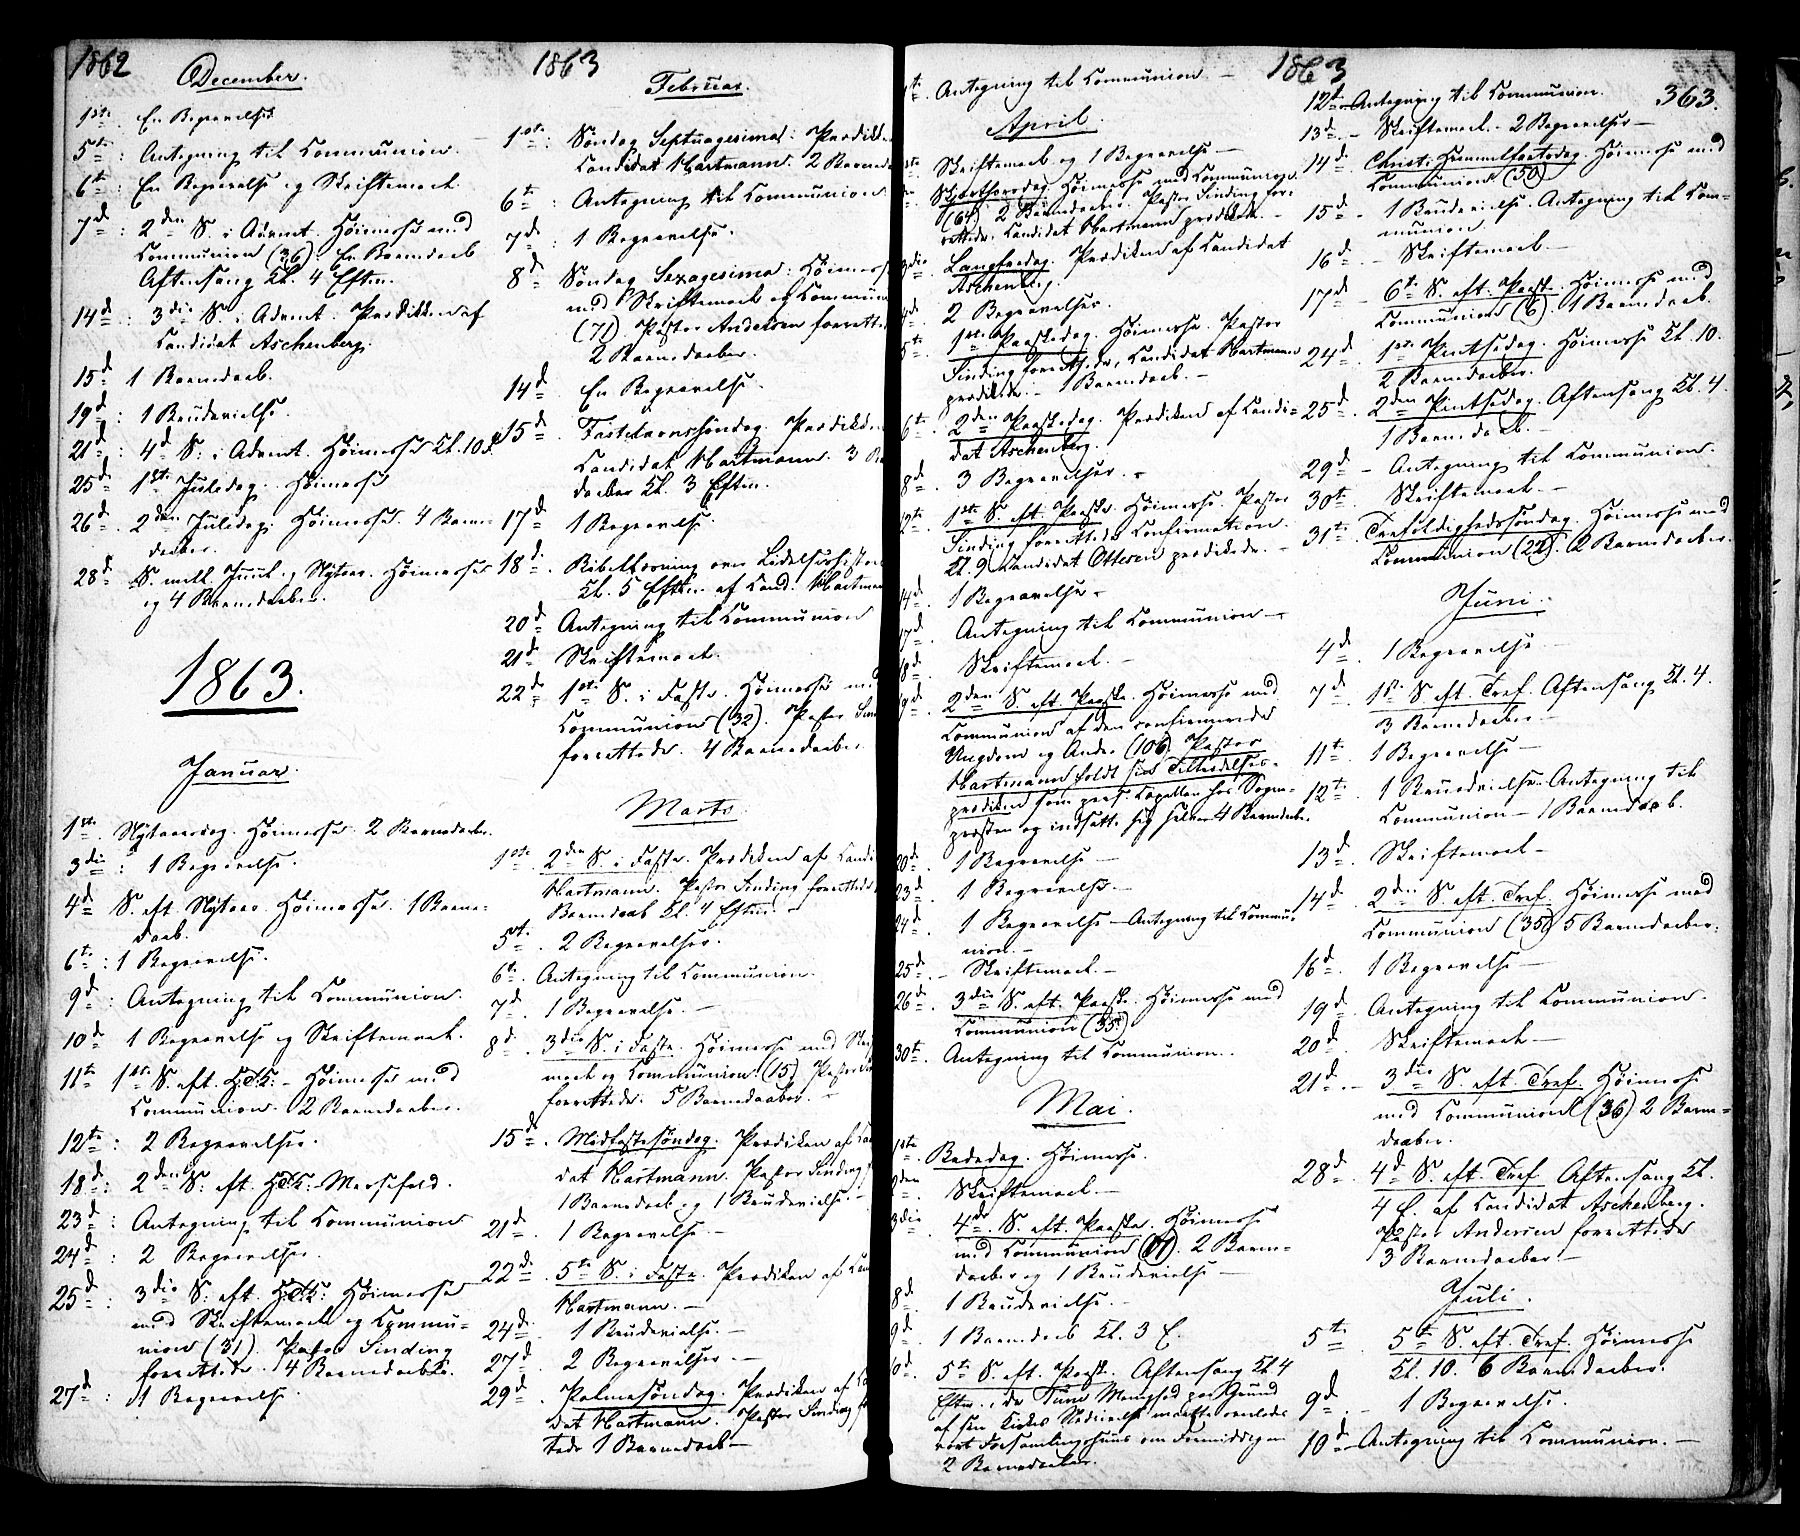 1862
December.
1ste. En Begravelse
5te: Antegning til Communion.
6te: En Begravelse og Skriftemaal.
7d: 2den S. i Advent. Høimesse med
Communion (36). En Barnedaab
Aftensang Kl. 4 Eftm.
14d: 3die S. i Advent. Prædiken af
Candidat Aschenberg.
15d. 1 Barnedaab.
19d: 1 Brudevielse.
21d: 4d S. i Advent. Høimesse Kl. 10
25d. 1ste Juledag. Høimesse
26d. 2den Juledag. Høimesse. 4 Barne-
daaber.
28d. S. mell. Juul og Nytaar. Høimesse
og 4 Barnedaaber.
1863.
Januar.
1ste. Nytaarsdag. Høimesse. 2 Barnedaaber.
3die: 1 Begravelse.
4d. S. eft. Nytaar. Høimesse. 1 Barne-
daab.
6te: 1 Begravelse.
9d: Antegning til Communion.
10d. 1 Begravelse og Skriftemaal.
11te 1ste S. eft. H.3.K. - Høimesse med
Communion. 2 Barnedaaber.
12te: 2 Begravelser.
18d: 2den S. eft. H.3.K. Messefald.
23d: Antegning til Communion
24d: 2 Begravelser.
25d: 3die S. eft. H.3.K. Høimesse
med Skriftemaal og Commu-
nion (31). Pastor Sinding
forrettede. 4 Barnedaaber.
27d: 1 Begravelse.
1863
Februar.
1ste: Søndag Septuagesima: Prædiken
Candidat Hartmann. 2 Barneda
6te: Antegning til Communion
7d: 1 Begravelse.
8d. Søndag Sexagesima: Høimess
med Skriftemaal og Commun
(71) Pastor Andersen forrette
2 Barnedaaber.
14d. En Begravelse.
15d. Fastelavnssøndag. Prædiken
Candidat Hartmann. 3 Ba
daaber Kl. 3 Eftm.
17d. 1 Begravelse.
18d. Bibellæsning over Lidelseshistor
Kl. 5 Eftm. af Cand. Hartman
20d. Antegning til Communion
21d. Skriftemaal.
22d. 1ste S. i Faste. Høimesse med
Communion (32). Pastor Sin
forrettede. 4 Barnedaaber.
Marts.
1ste. 2den S. i Faste. Prædiken af Candi
Hartmann. Pastor Sinding forrettede
Barnedaab Kl. 4 Eftm.
5te. 2 Begravelser.
6te. Antegning til Communion.
7d. 1 Begravelse. -
8d. 3die S. i Faste. Høimesse med Skri
maal og Communion (15) Pastor
forrettede. 5 Barnedaaber. -
15d. Midfastesøndag. Prædiken af Ca
dat Hartmann. Pastor Sinding
1 Barnedaab og 1 Brudevielse. -
21d. 1 Begravelse. -
22d. 5te S. i Faste. Prædiken af Can
Hartmann. -
24d. 1 Brudevielse. -
27d. 2 Begravelser. -
29d. Palmesøndag. Prædiken af Ca
dat Hartmann. Pastor Sinding f
tede 1 Barnedaab -
1863
363.
Antegning til Communion. -
April.
Skriftemaal og 1 Begravelse -
Skjærtorsdag. Høimesse med Communion
(64). 2 Barnedaaber. Pastor Sinding for-
rettede. Candidat Hartmann prædikede. -
3die. Langfredag. Prædiken af Candidat
Aschenberg.
4d. 2 Begravelser.
5te. 1ste Paaskedag. Høimesse. Pastor
Sinding forrettede, Candidat Hartmann
prædikede. - 1 Barnedaab. -
6te. 2den Paaskedag. Prædiken af Candi-
dat Aschenberg.
8d. 3 Begravelser. -
12te. 1ste S. eft. Paaske. Høimesse. Pastor
Sinding forrettede Confirmation.
Kl. 9. Candidat Ottesen prædikede. -
14d. 1 Begravelse -
17d. Antegning til Communion -
18d. Skriftemaal. -
19d. 2den S. eft. Paaske. Høimesse med
Communion af den confirmerede
Ungdom og Andre (106). Pastor
Hartmann holdt sin Tiltrædelses-
prædiken som pers. Capellan hos Sogne-
præsten og indsatte sig selv. 4 Barnedaaber.
20d. 1 Begravelse -
23d. 1 Begravelse. -
24d. 1 Begravelse - Antegning til Commu-
nion. -
25d. - Skriftemaal. -
26d. 3die S. eft. Paaske. Høimesse med
Communion (35)
30te. Antegning til Communion.
Mai.
1ste. Bededag. Høimesse.
2den. Skriftemaal. -
3die. 4de S. eft. Paaske. Høimesse
med Communion. 2 Barne-
daaber og 1 Brudevielse -
8d. 1 Brudevielse. -
9d. 1 Barnedaab Kl. 3 E.
5te S. eft. Paask. Aftensang Kl. 4
Eftm., da Tune Menighed paa Grund
af sin Kirkes Nedrivelse maatte overlades
vort Forsamlingshuus om Formiddagen
2 Barnedaaber.
12te - Antegning til Communion.
13d. - Skriftemaal. - 2 Begravelser -
14d. Christi Himmelfartsdag. Høimesse med
Communion (50)
15d. - 1 Brudevielse. Antegning til Com-
munion.
16d. - Skriftemaal. -
17d. - 6te S. eft. Paask. Høimesse med
Communion (6). 1 Barnedaab.
24d. 1ste Pintsedag. Høimesse Kl. 10.
2 Barnedaaber.
25d. 2den Pintsedag. Aftensang Kl. 4.
1 Barnedaab. -
29d - Antegning til Communion.
30te. Skriftemaal. -
31te. Trefoldighedssøndag. Høimesse med
Communion (22). 2 Barnedaaber.
Juni.
4d. 1 Begravelse
7d. 1ste S. eft. Tref. Aftensang Kl. 4.
3 Barnedaaber -
11te. 1 Begravelse -
12te. 1 Brudevielse. Antegning til
Communion - 1 Barnedaab.
13d. Skriftemaal -
14d. 2den S. eft. Tref. Høimesse med
Communion (35) 5 Barnedaaber.
16d. 1 Begravelse -
19d. Antegning til Communion.
20d. Skriftemaal -
21d. - 3die S. eft. Tref. Høimesse
med Communion (36) 2 Barne-
daaber.
28d. 4d S. eft. Tref. Aftensang Kl.
4 E. af Candidat Aschenberg.
Pastor Andersen forrettede
3 Barnedaaber -
Juli.
5te. 5te S. eft. Tref. Høimesse
Kl. 10. 6 Barnedaaber.
9d. - 1 Begravelse.
10d - Antegning til Communion. -